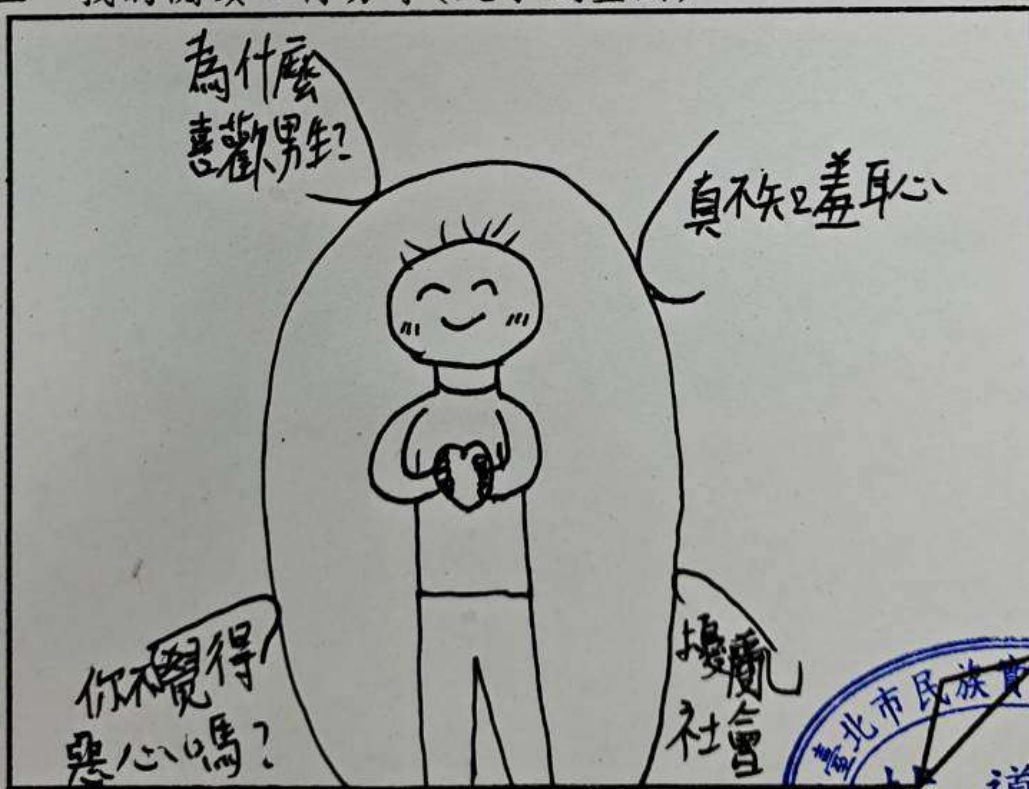 為什麼
喜歡男生？
真不知羞恥
你不覺得
惡心嗎？
擾亂
社會
臺北市民族實